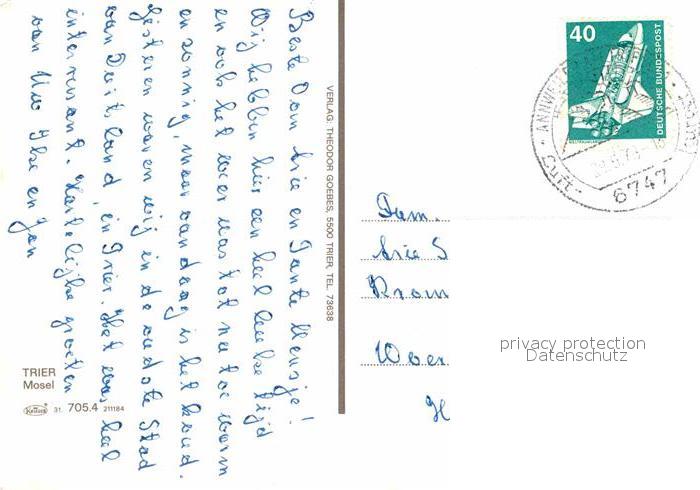 Beste Oom Arie en Tante Mensje!
Wij hebben hier een heel leuke tijd
en ook het weer was tot nu toe warm
en zonnig, maar vandaag is het koud.
Gisteren waren wij in de oudste Stad
van Duitsland, in Trier. Het was heel
interressant. Hartelijke groeten
van Uw Ilse en Jan
TRIER
Mosel
Krüger
31. 705.4 211184
VERLAG: THEODOR GOEBES, 5500 TRIER, TEL. 73638
40
DEUTSCHE BUNDESPOST
ANNWEILER
Luft-
6747
Fam.
Arie S
Krom
Woer
H
privacy protection
Datenschutz